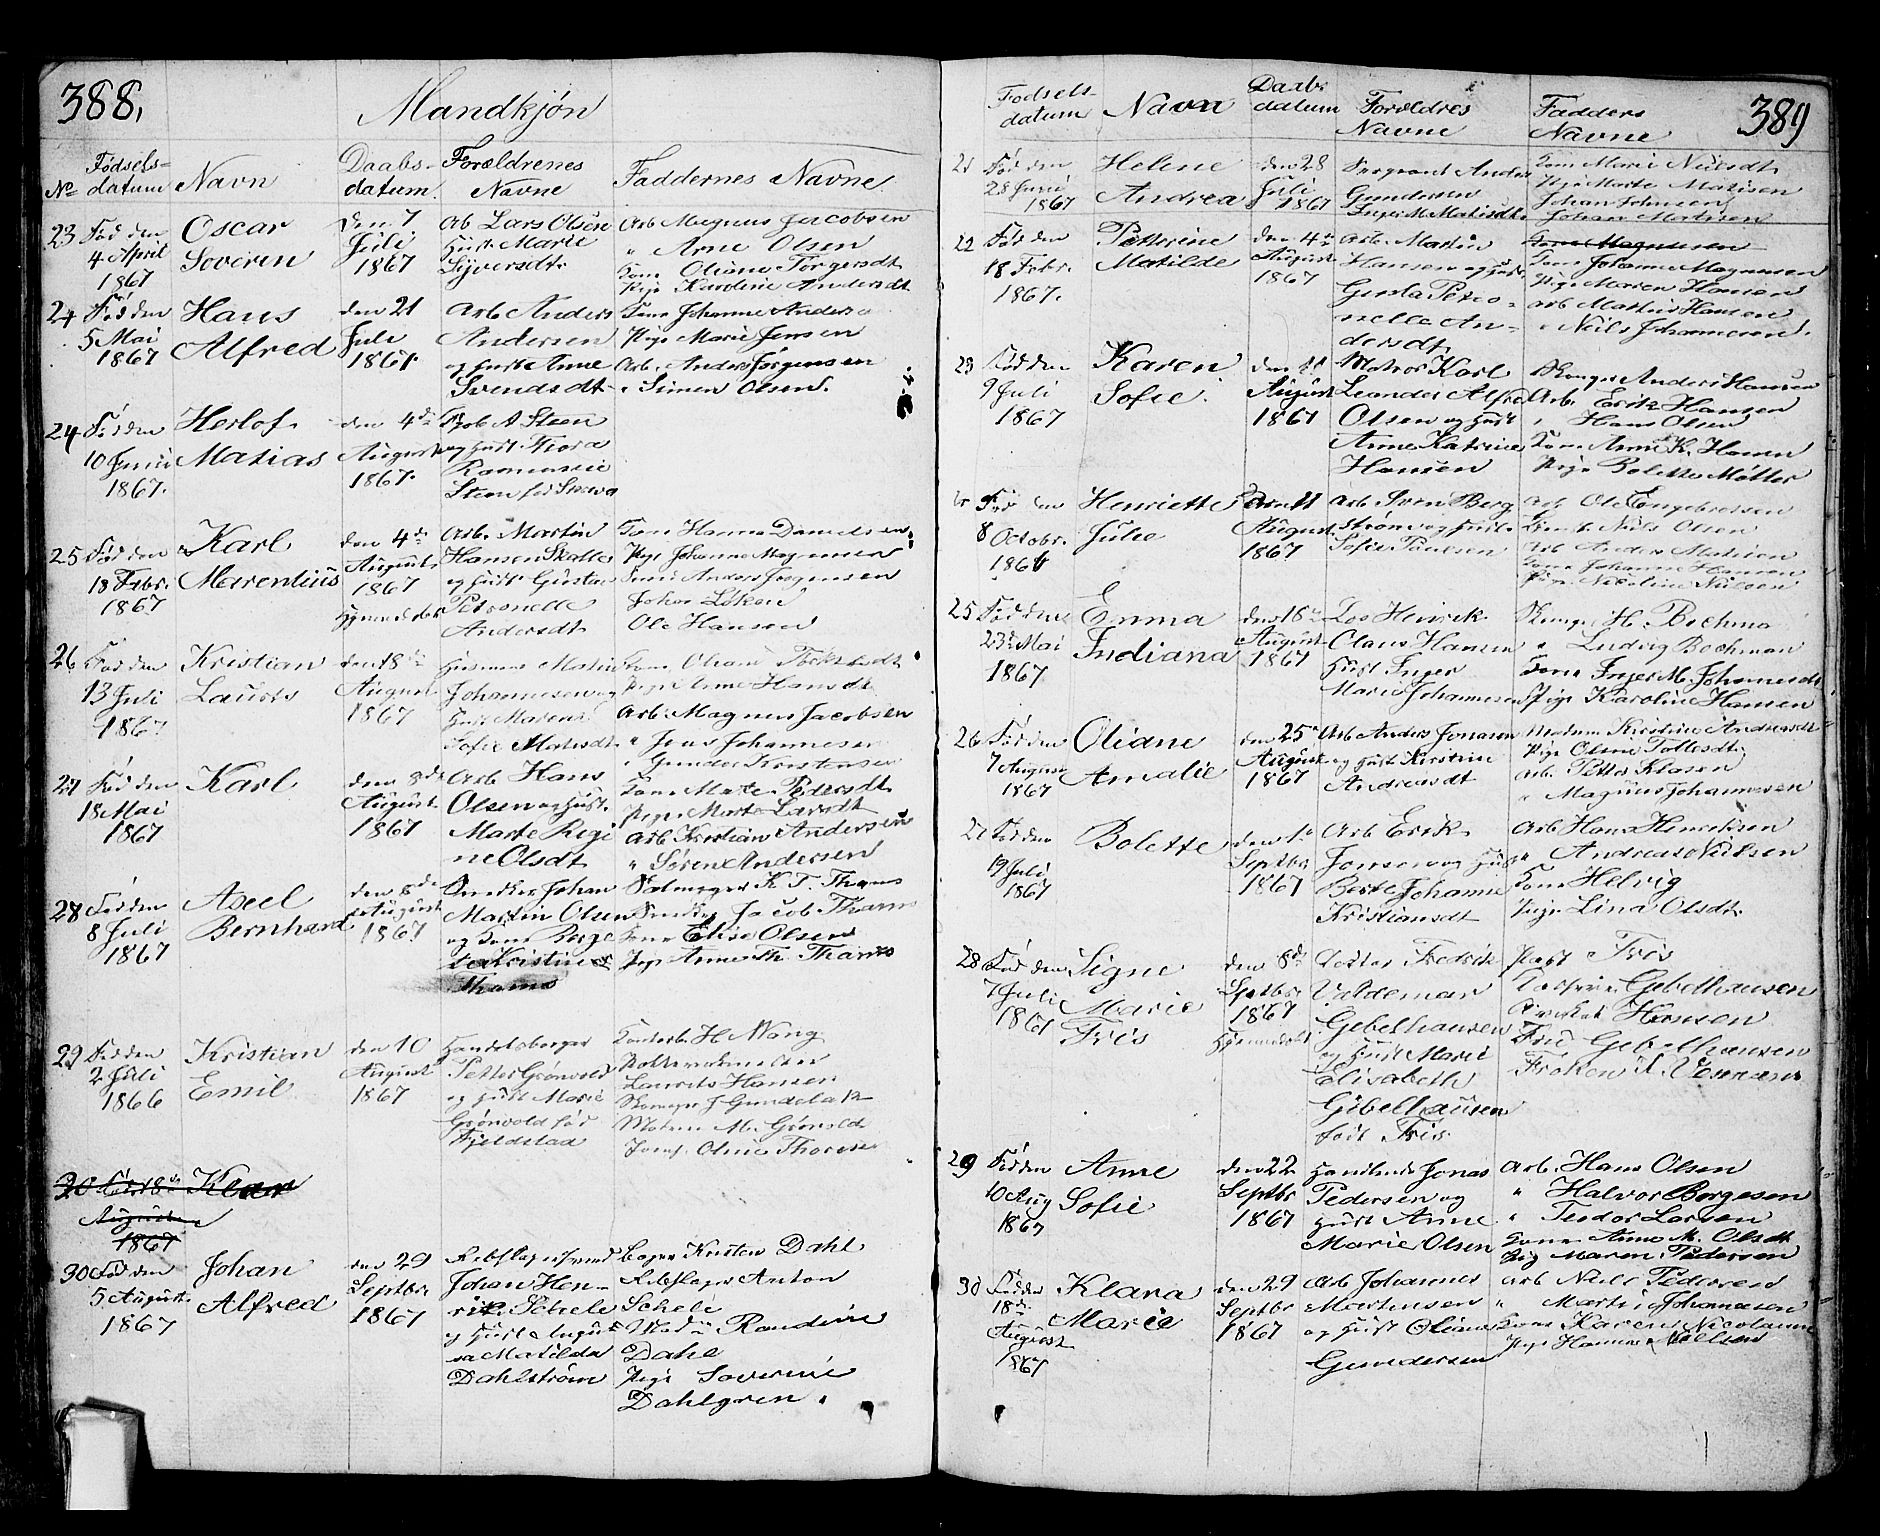 388.
Mandkjøn
No
Fødsels-
datum
Navn
Daabs-
datum.
Forældrenes
Navne
Faddernes Navne
23
Fød den
4 April
1867
Oscar
Severin
den 7.
Juli
1867
Arb Lars Olsen
Hust. Marie
Syversdt.
Arb. Magnus Jacobsen
" Arne Olsen
Kone Oliane Torgersdt
Pige Karoline Andersdt
24
Fød den
5 Mai
1867
Hans
Alfred
den 21
Juli
1867
Arb Anders
Andersen
og Hust Anne
Svendsdt
Kone Johanne Anders
Pige Marie Jensen
Arb. Anders Jørgensen
" Simen Olsen
24
Fød den
10 Junii
1867.
Herlof
Matias
den 4de
August
1867.
A Steen
og Hust. Thora
Steen fød
25
Fød den
18 Febr.
1867
Karl
Marentius
den 4de
August
1867
Hjemmedøbt
Arb. Martin
Hansen
og Hust Gusta
Petronelle
Andersdt
Kone Hanna Danielsen
Pige Johanne Magnusen
Anders Jørgensen
Johan Løken
Ole Hansen
26
Fød den
13 Juli
1867
Kristian
Laurits
den 18de
August
1867
Husmand Martin
Johannesen og
Hust Maren
Sofie Matisdt
Kone Oliane
Pige Anne Hansdt
Arb. Magnus Jacobsen
" Jens Johannesen
" Gunder Torstensen
27
Fød den
18 Mai
1867
Karl
den
August
1867
Arb Hans
Olsen og Hust.
Marte Regi
ne Olsdt
Kone Marte Pedersdt
Pige Marte Larsdt
Arb Kristian Andersen
" Søren Andersen
28
Fød den
8 Juli
1867
Axel
Bernhard
den
August
1867
Snedker Johan
Martin Olsen
og Kone Berge
te Kristine
Thams
Salmager K T. Thams
Snedker Jacob Thams
Kone Elise Olsen
Pige Anne Th Thams
29
Fød den
2 Juli
1866
Kristian
Emil
den 10
August
1867
Handelsborger
Petter Grønvold
og Hust Marie
Grønvold fød
Fjeldstad
H Wang
Laurits Hansen
J Gundelak
Madam M. Grønvold
Jomf. Oline Thorese
30 Fød 18de Klara
August
1867
30
Fød den
5 August
1867
Johan
Alfred
den 29
Septbr
1867
Rebslagersvend
Johan Hen-
rik Schele
og Hust Augus
ta Matilda
Dahlstrøm
Bager Kristen Dahl
Rebslager Anton
Schele
Madm Randine
Dahl
Pige Severine
Dahlgren.
389
Fødsels-
datum
Navn
Daabs
datum
Forældres
Navne
Fadders
Navne
21
Fød den
28 Juni
1867
Helene
Andrea
den 28
Juli
1867
Sergeant Anders
Gundersen
Inger M. Matisdt.
Kone Marie Nielsdt
Pige Marte Matisen
Johan Johnsen
Johan Matisen
22
Fød den
18 Febr.
1867.
Petterine
Matilde
den 4de
August
1867
Arb. Martin
Hansen og Hust.
Gusta Petro-
nelle An-
dersdt
Kone Magnusen
Kone Johanne Magnusen
Pige Maren Hansen
Arb Mathis Hansen
" Niels Johannesen.
23
Fød den
9 Juli
1867
Karen
Sofie.
den 11
August
1867
Matros Karl
Leander Alfred
Olsen og Hust
Anne Katrine
Hansen
Anders Hansen
Arb. Erik Hansen
" Hans Olsen
Kone Anne K. Hansen
Pige Bolette Møller
Fød den
8 Octobr.
1866
Henriette
Julie
den 11
August
1867
Arb Sven Berg
strøm og Hust.
Sofie Paulsen
Arb. Ole Engebretsen
Niels Olsen
Arb Anders Matisen
Kone Johanne Hansen
Pige Nicoline Nilsen
25
Fød den
23de Mai
1867
Emma
Indiana
den 16de
August
1867
Los Henrik
Olaus Hansen
Hust Inger
Marie Johannesen
H. Bochma
" Ludvig Bochman
Kone Inger M. Johannesdt
Pige Karoline Hansen
26
Fød den
7 August
1867
Oliane
Amalie
den 25de
August
1867
Arb Anders Jonasen
og Hust Kirstine
Andreasdt
Madam Kristine Andreasdt
Pige Oline Tollefsdt.
Arb. Petter Klasen
" Magnus Johannesen
27
Fød den
19 Juli
1867
Bolette
den 1de
Septbr
1867
Arb Erik
Jonsen og Hust
Berte Johanne
Kristiansdt
Arb Hans Henriksen
" Andreas Nielsen
Kone Helvig
Pige Lina Olsdt.
28
Fød den
7 Juli
1867
Signe
Marie
Friis
den 8de
Septbr
1867
Hjemmedøbt
Doctor Fredrik
Valdemar
Gebelhausen
og Hust Marie
Elisabeth
Gebelhausen
født Friis
Friis
Gebelhausen
Hansen
Fru Gebelhausen
Frøken
29
Fød den
10 Aug
1867
Anne
Sofie
den 22
Septbr
1867
Jonas
Pedersen og
Hust Anne
Marie Olsen
Arb. Hans Olsen
" Halvor Borgesen
" Teodor Larsen
Kone Anne M. Olsdt
Pig Maren Pedersen
30
Fød den
18de
August
1867
Klara
Marie
den 29
Septbr
1867
Arb Johannes
Mortensen
og Hust Oliane
Gundersen
Arb Niels Pedersen
" Martin Johannesen
Kone Karen Nicolaisen
Pige Hanna Nielsen